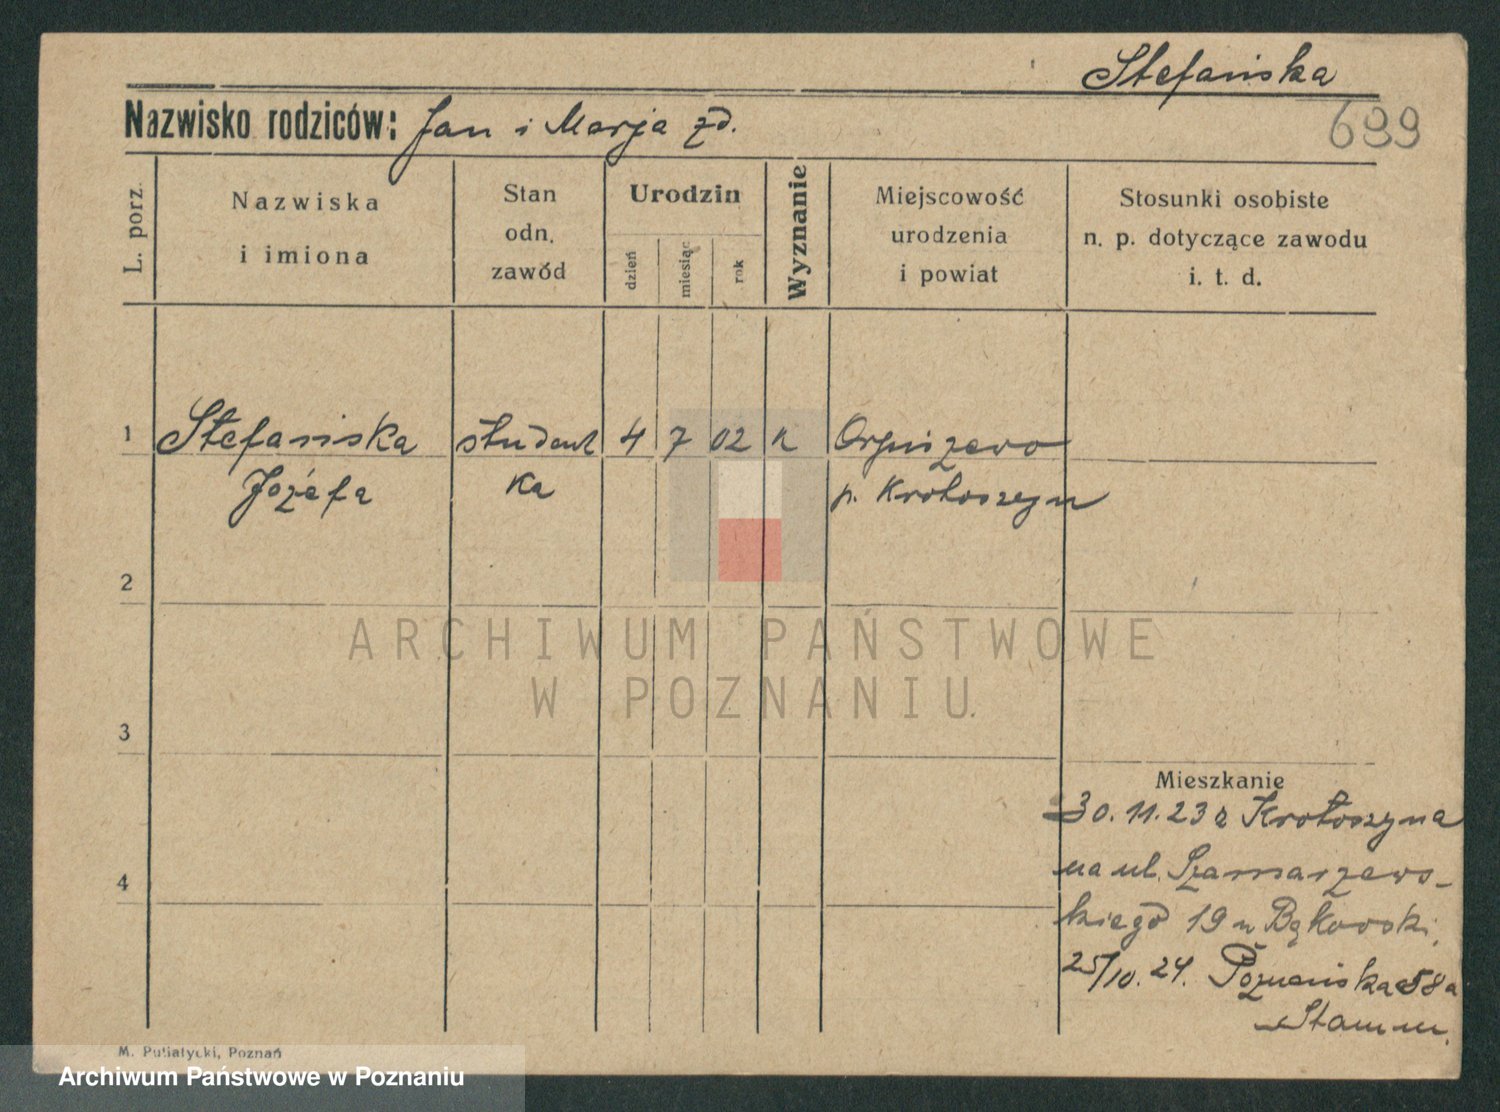 Stefańska
699
Nazwisko rodziców: Jan i Marja zd.
L. porz.
Nazwiska
i imiona
Stan
odn.
zawód
Urodzin
dzień
miesiąc
rok
Wyznanie
Miejscowość
urodzenia
i powiat
Stosunki osobiste
n. p. dotyczące zawodu
i. t. d.
1 Stefańska student 4 7 02 k Orpiszewo
Józefa ka p. Krotoszyn
2
3
4
ARCHIWUM PAŃSTWOWE
W POZNANIU
Mieszkanie
30.11.23 z Krotoszyna
na ul. Szamarzews-
kiego 19 u Bąkowski.
25/10.24. Poznańska 58a
Stamm.
M. Putiatycki, Poznań
Archiwum Państwowe w Poznaniu